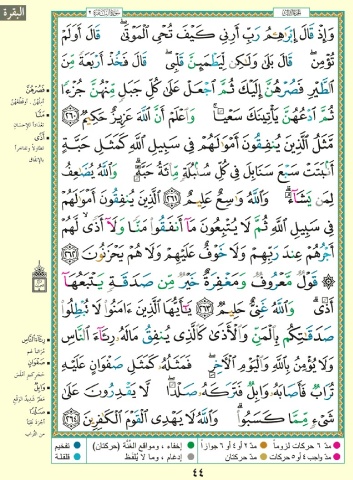 البقرة
وَإِذْ قَالَ إِبْرَٰهِـۧمُ رَبِّ أَرِنِى كَيْفَ تُحْىِ ٱلْمَوْتَىٰ ۖ قَالَ أَوَلَمْ
تُؤْمِن ۖ قَالَ بَلَىٰ وَلَٰكِن لِّيَطْمَئِنَّ قَلْبِى ۖ قَالَ فَخُذْ أَرْبَعَةً مِّنَ
ٱلطَّيْرِ فَصُرْهُنَّ إِلَيْكَ ثُمَّ ٱجْعَلْ عَلَىٰ كُلِّ جَبَلٍ مِّنْهُنَّ جُزْءًا
ثُمَّ ٱدْعُهُنَّ يَأْتِينَكَ سَعْيًا ۚ وَٱعْلَمْ أَنَّ ٱللَّهَ عَزِيزٌ حَكِيمٌ ٢٦٠
مَّثَلُ ٱلَّذِينَ يُنفِقُونَ أَمْوَٰلَهُمْ فِى سَبِيلِ ٱللَّهِ كَمَثَلِ حَبَّةٍ
أَنۢبَتَتْ سَبْعَ سَنَابِلَ فِى كُلِّ سُنۢبُلَةٍ مِّا۟ئَةُ حَبَّةٍ ۗ وَٱللَّهُ يُضَٰعِفُ
لِمَن يَشَآءُ ۗ وَٱللَّهُ وَٰسِعٌ عَلِيمٌ ٢٦١ ٱلَّذِينَ يُنفِقُونَ أَمْوَٰلَهُمْ
فِى سَبِيلِ ٱللَّهِ ثُمَّ لَا يُتْبِعُونَ مَآ أَنفَقُوا۟ مَنًّا وَلَآ أَذًى ۙ لَّهُمْ
أَجْرُهُمْ عِندَ رَبِّهِمْ وَلَا خَوْفٌ عَلَيْهِمْ وَلَا هُمْ يَحْزَنُونَ ٢٦٢
۞ قَوْلٌ مَّعْرُوفٌ وَمَغْفِرَةٌ خَيْرٌ مِّن صَدَقَةٍ يَتْبَعُهَآ
أَذًى ۗ وَٱللَّهُ غَنِىٌّ حَلِيمٌ ٢٦٣ يَٰٓأَيُّهَا ٱلَّذِينَ ءَامَنُوا۟ لَا تُبْطِلُوا۟
صَدَقَٰتِكُم بِٱلْمَنِّ وَٱلْأَذَىٰ كَٱلَّذِى يُنفِقُ مَالَهُۥ رِئَآءَ ٱلنَّاسِ
وَلَا يُؤْمِنُ بِٱللَّهِ وَٱلْيَوْمِ ٱلْـَٔاخِرِ ۖ فَمَثَلُهُۥ كَمَثَلِ صَفْوَانٍ عَلَيْهِ
تُرَابٌ فَأَصَابَهُۥ وَابِلٌ فَتَرَكَهُۥ صَلْدًا ۖ لَّا يَقْدِرُونَ عَلَىٰ
شَىْءٍ مِّمَّا كَسَبُوا۟ ۗ وَٱللَّهُ لَا يَهْدِى ٱلْقَوْمَ ٱلْكَٰفِرِينَ ٢٦٤
فَصُرْهُنَّ
مَنًّا
أَذًى
رِئَاءَ النَّاسِ
صَفْوَانٍ
وَابِلٌ
صَلْدًا
مدّ ٦ حركات لزوماً
مدّ ٢ أو ٤ أو ٦ جوازاً
إخفاء، ومواقع الغُنَّة (حركتان)
تفخيم
مدّ واجب ٤ أو ٥ حركات
مدّ حركتان
إدغام، وما لا يُلفَظ
قلقلة
٤٤